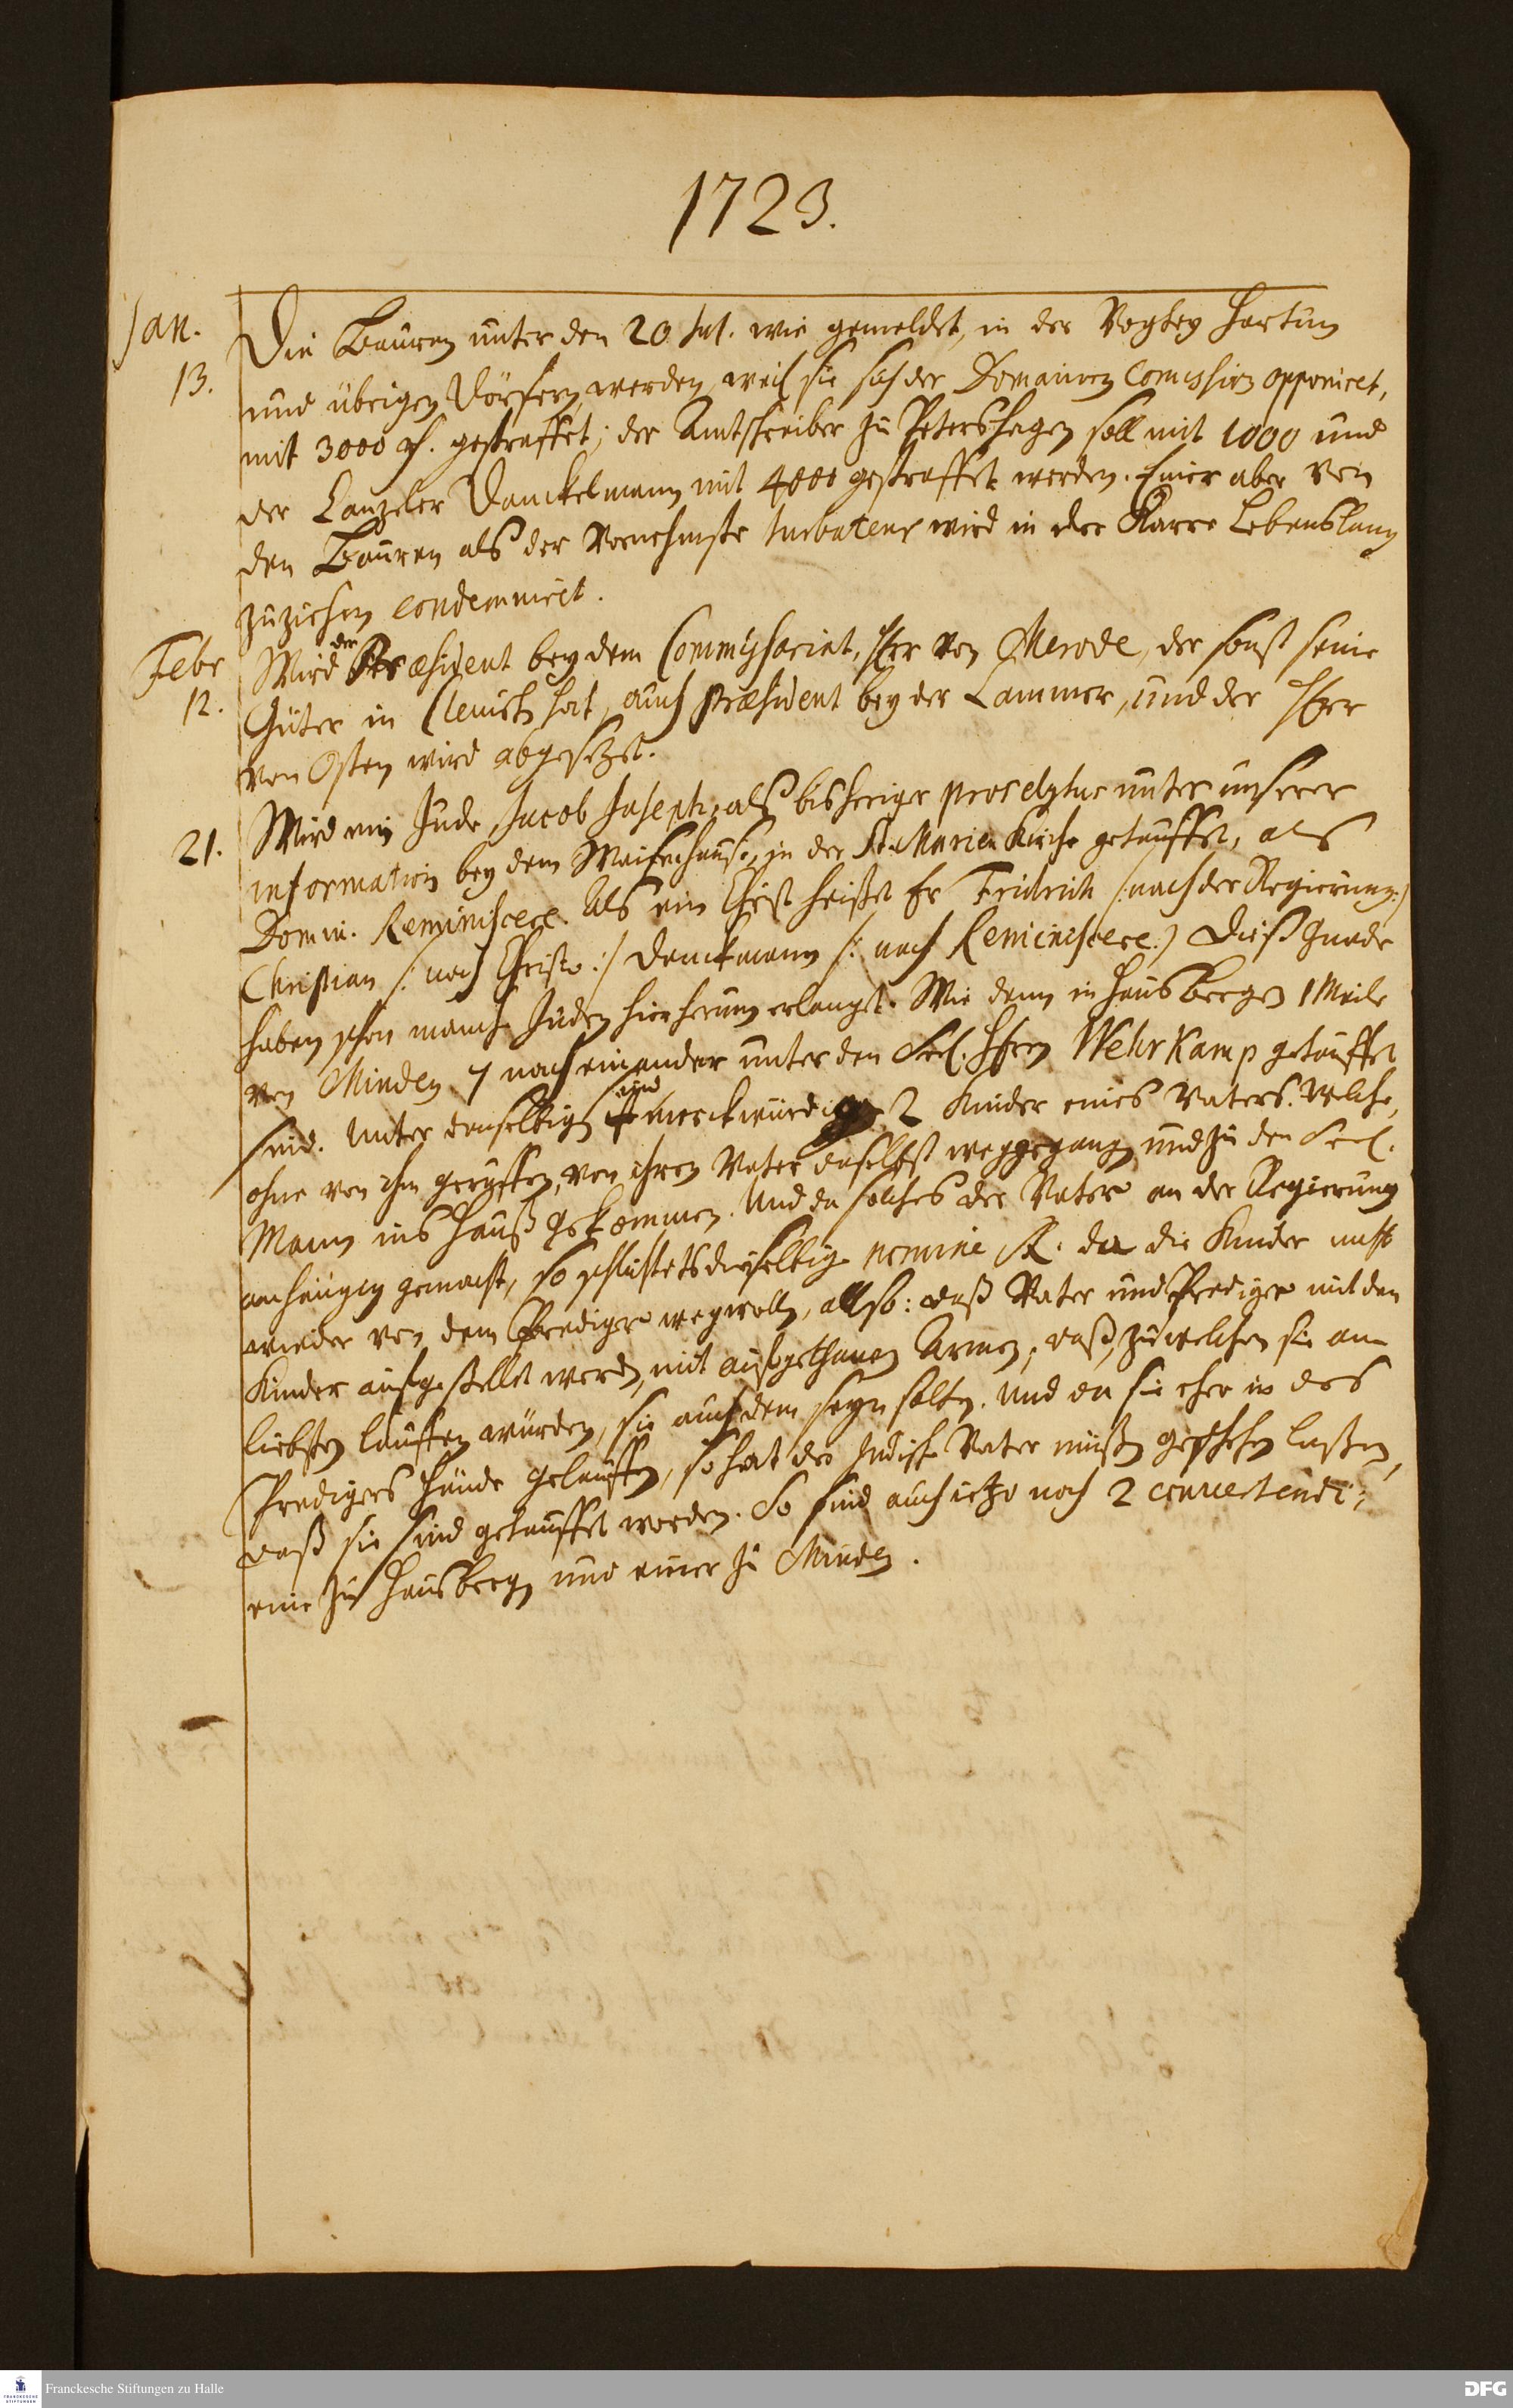 1723.
Jan.
13.
Die Bauren unter den 20 Jul. wie gemeldet, in der Vogtey Hartum
und übrigen Dörfern, werden, weil sie sich der Domainen Comission opponiret,
mit 3000 rh. gestraffet; der Amtschreiber zu Petershagen soll mit 1000 und
der Canzler Danckelmann mit 4000 gestraffet werden. Einer aber von
den Bauren als der Vornehmste turbateur wird in der Karre Lebenslang
zuziehen condemniret.
Febr
12.
Wird der Præsident bey dem Commissariat, Herr von Merode, der sonst seine
Güter in Clevisch hat, auch Præsident bey der Cammer, und der Herr
von Osten wird abgesetzet.
21.
Wird ein Jude, Jacob Joseph, als bisheriger proselytus unter unserer
information bey dem Waisenhause, in der St. Marien Kirche getauffet, als
Domin. Reminiscere. Als ein Christ heißet Er Fridrich /: nach der Regierung :/
Christian /: nach Christo :/ Denckmann /: nach Reminiscere :/ Diese Gnade
haben schon manche Juden hierherum erlanget. Wie denn in Hausbergen 1 Meile
von Minden 7 nach einander unter den Seel. Herrn Wehrkamp getauffet
sind. Unter denselbigen sind merckwürdig 2 Kinder eines Vaters. Welche,
ohne von ihm geruffen, von ihren Vater daselbst weggegangen und zu den Seel.
Mann ins Hauß gekommen. Und da solches der Vater an der Regierung
anhängig gemacht, so schlichtets dieselbige nomine R. da die Kinder nicht
wieder von dem Prediger wegwolten, also: daß Vater und Prediger mit den
Kinder aufgestellet werden, mit aufgethanen Armen, daß, zu welchen sie am
liebsten lauffen würden, sie auch dem seyn solten. Und da sie eher in des
Predigers Hände gelauffen, so hat der Jüdische Vater müßen geschehen laßen,
daß sie sind getauffet worden. So sind auch ietzo noch 2 convertendi;
eine zu Hausbergen und einer zu Minden.
Franckesche Stiftungen zu Halle
FRANCKESCHE STIFTUNGEN
DFG